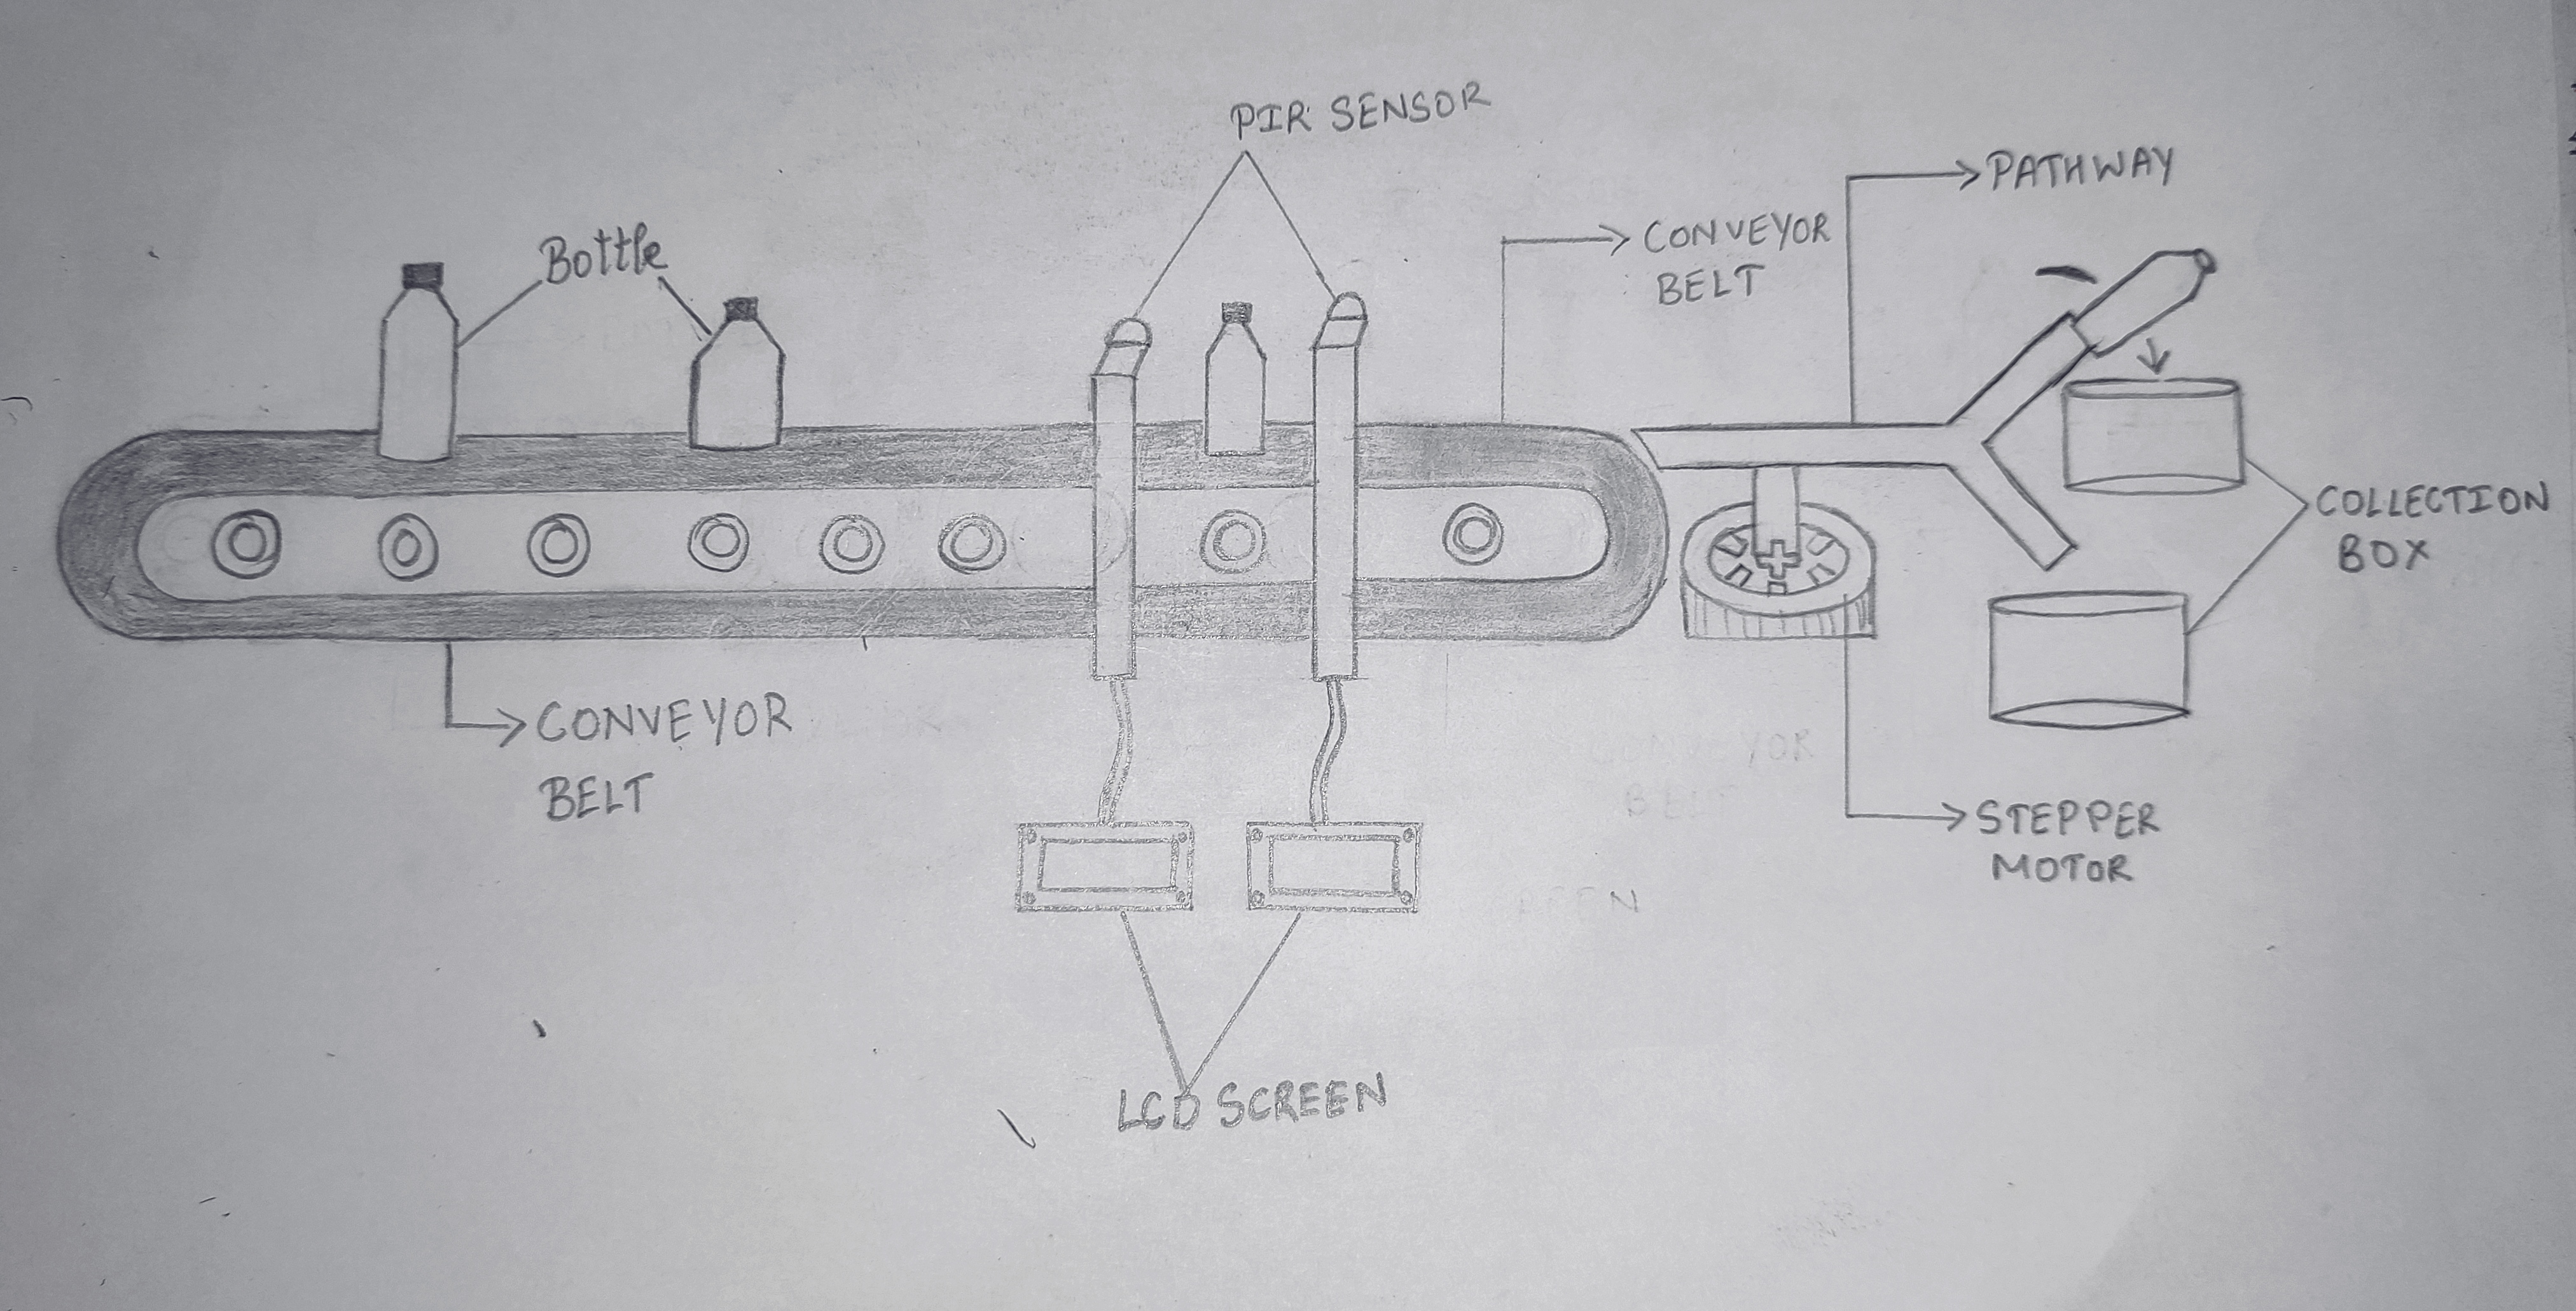 PIR SENSOR
PATHWAY
CONVEYOR
BELT
Bottle
COLLECTION
BOX
CONVEYOR
BELT
STEPPER
MOTOR
LCD SCREEN